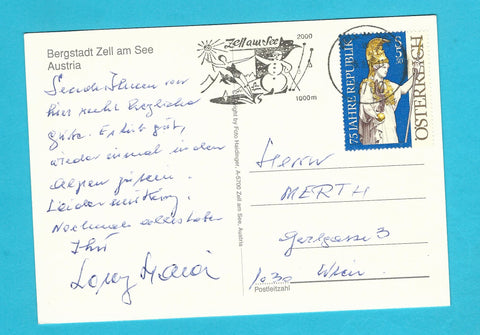 Bergstadt Zell am See
Austria
Sende Ihnen von
hier recht herzliche
Grüße. Es tut gut,
wieder einmal in den
Alpen zu sein.
Leider mit
Nochmals alles
Ihr
Zell am See
2000
1000m
Copyright by Foto Haidinger, A-5700 Zell am See, Austria
75 JAHRE REPUBLIK
S 5.50
ÖSTERREICH
Herrn
MERTH
3
1030 Wien
Postleitzahl